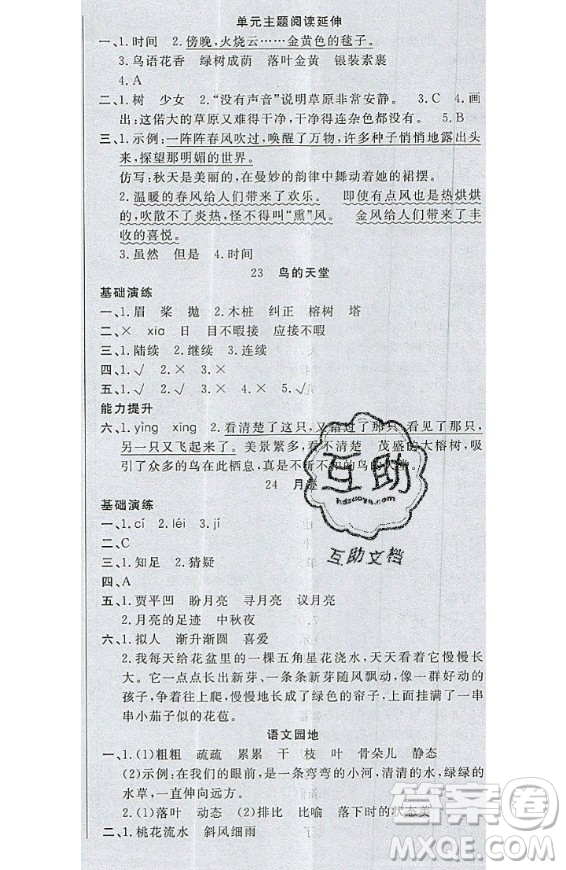 单元主题阅读延伸
一、1.时间　2.傍晚,火烧云……金黄色的毯子。
3.鸟语花香　绿树成荫　落叶金黄　银装素裹
4.A
二、1.树　少女　2.“没有声音”说明草原非常安静。　3.C　4.画
出:这偌大的草原又难得干净,干净得连杂色都没有。　5.B
三、1.示例:一阵阵春风吹过,唤醒了万物,许多种子悄悄地露出头
来,探望那明媚的世界。
仿写:秋天是美丽的,在曼妙的韵律中舞动着她的裙摆。
2.温暖的春风给人们带来了欢乐。　即使有点风也是热烘烘
的,吹散不了炎热,怪不得叫“熏”风。　金风给人们带来了丰
收的喜悦。
3.虽然　但是　4.时间
23　鸟的天堂
基础演练
一、1.眉　桨　抛　2.木桩　纠正　榕树　塔
二、×　xia　日　目不暇接　应接不暇
三、1.陆续　2.继续　3.连续
四、1.√　2.×　3.×
五、1.√　2.√　3.×　4.×　5.√
能力提升
六、1.yìng　xìng　2.看清楚了这只,又错过了那只,看见了那只,
另一只又飞起来了。　美景繁多　茂盛的大榕树,吸
引了众多的鸟在此栖息,
24　月迹
基础演练
一、1.cí　2.léi　3.jí
二、C
三、1.知足　2.猜疑
四、A
五、1.贾平凹　盼月亮　寻月亮　议月亮
2.月亮的足迹　中秋夜
六、1.拟人　渐升渐圆　喜爱
2.我每天给花盆里的一棵五角星花浇水,天天盼着它慢慢长
大。它一点点长出了新芽、一条条新芽随风飘动,像一群好动的
孩子,攀着其他的枝干,慢慢地长成了绿色的帘子,上面挂了一串
串小茄子似的花苞。
语文园地
一、1.(1)粗粗　疏疏　累累　干　枝　叶　骨朵儿　静态
(2)示例:在我们的眼前,是一条弯弯的小河,清清的水,绿绿的
水草,一直伸向远方。
2.(1)落叶　动态　(2)排比　比喻　落下时的状态美
二、1.桃花流水　斜风细雨
互助
hdzuoye.com
互助文档
答案圈
MXQE.COM